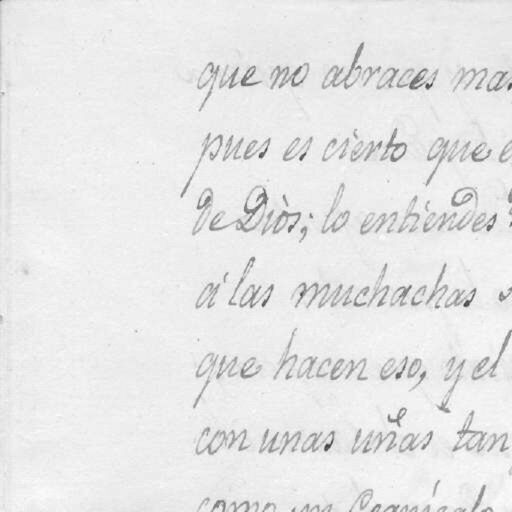 que no abraces mas
pues es cierto que
de Diòs; lo entiendes
á las muchachas
que hacen eso, y el
con unas uñas tan
como un